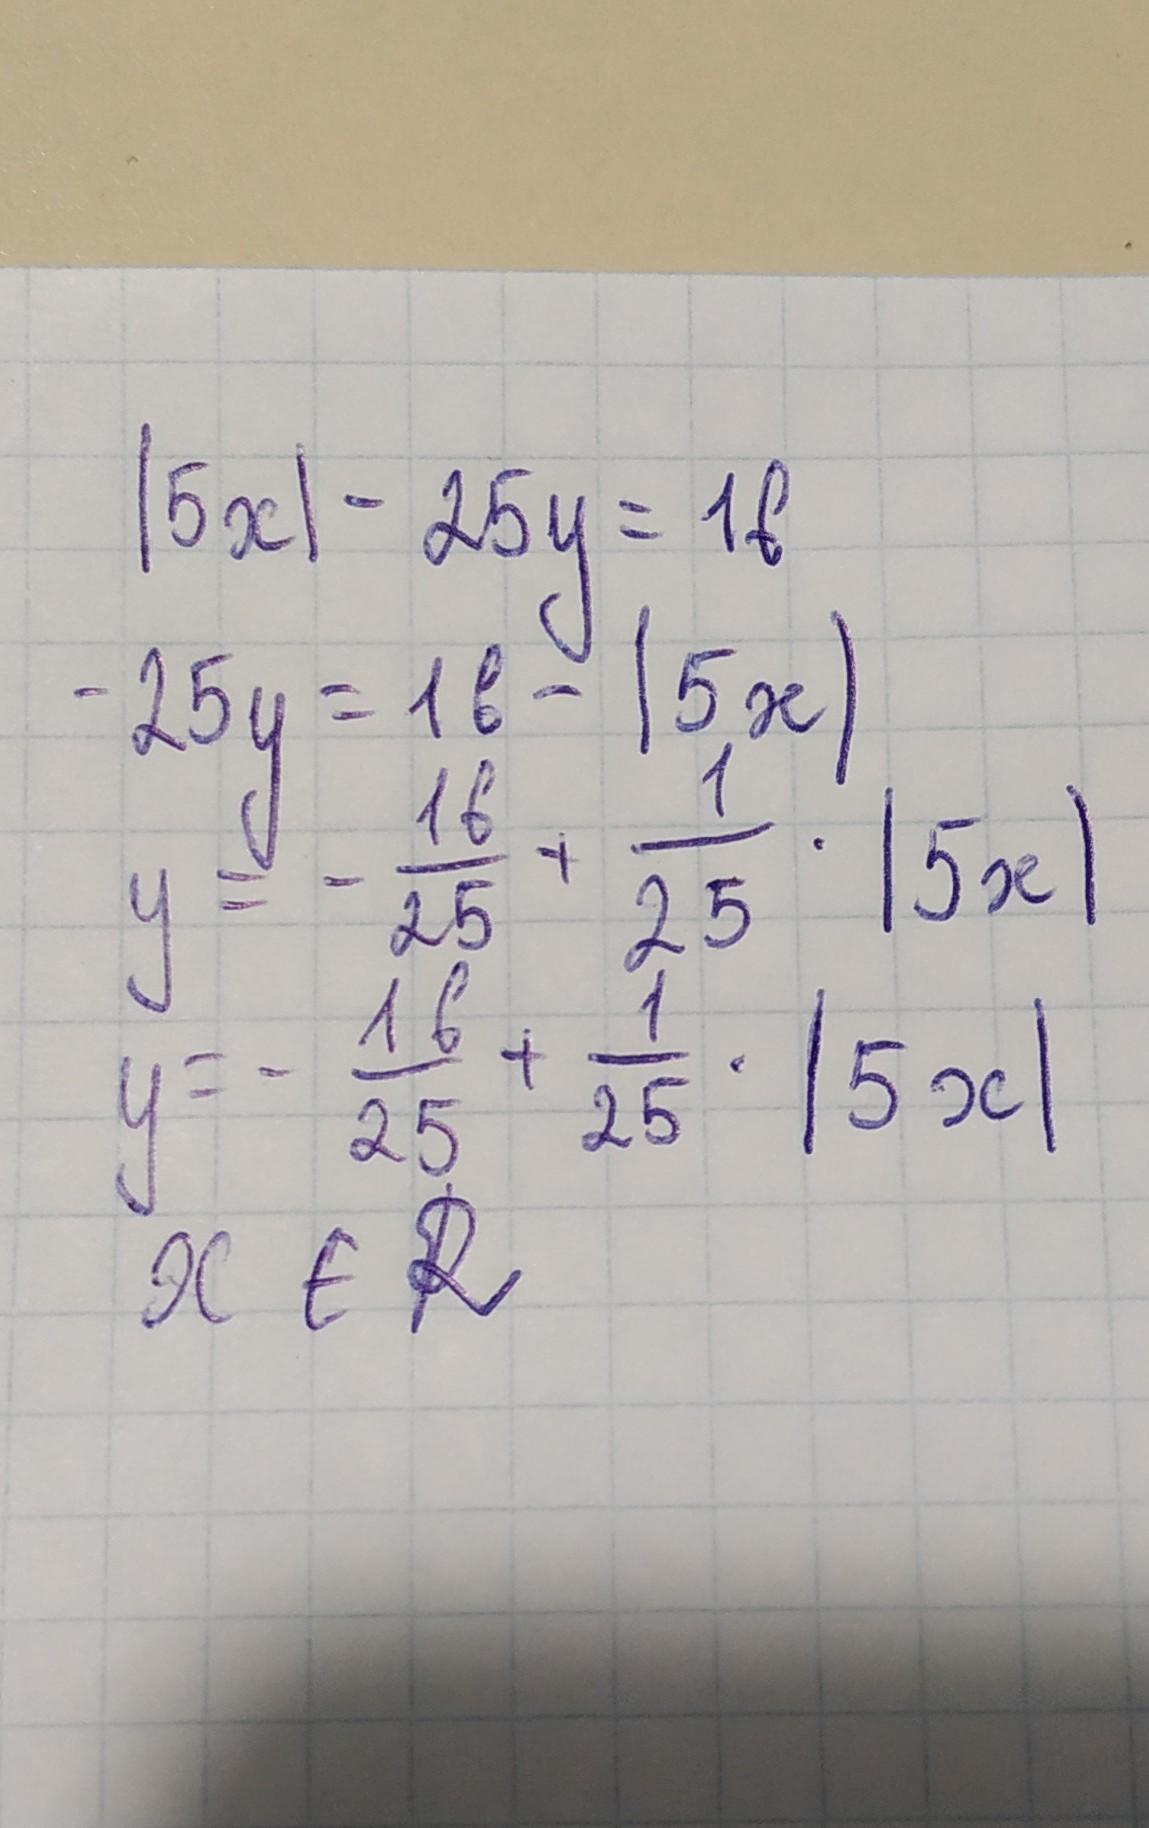 |5x| - 25y = 16
-25y = 16 - |5x|
y = - 16/25 + 1/25 · |5x|
y = - 16/25 + 1/25 · |5x|
x ∈ R